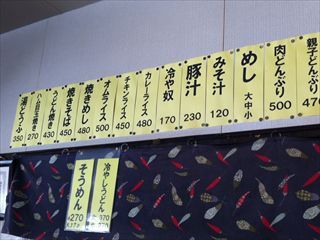 親子どんぶり 470
肉どんぶり 500
めし 大中小
みそ汁 120
豚汁 230
冷や奴 170
カレーライス 480
チキンライス 450
オムライス 500
焼きめし 480
焼きそば 450
うどん焼き 430
ハム目玉焼き 270
湯どうふ 350
冷やしうどん
そうめん
¥270